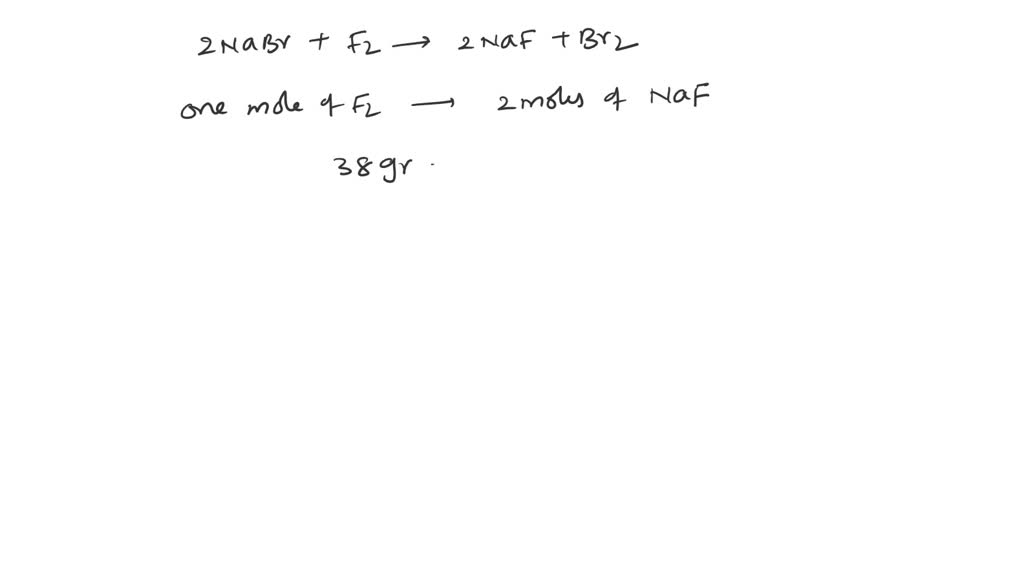 2NaBr + F2 → 2NaF + Br2
one mole of F2 → 2 moles of NaF
38gr .